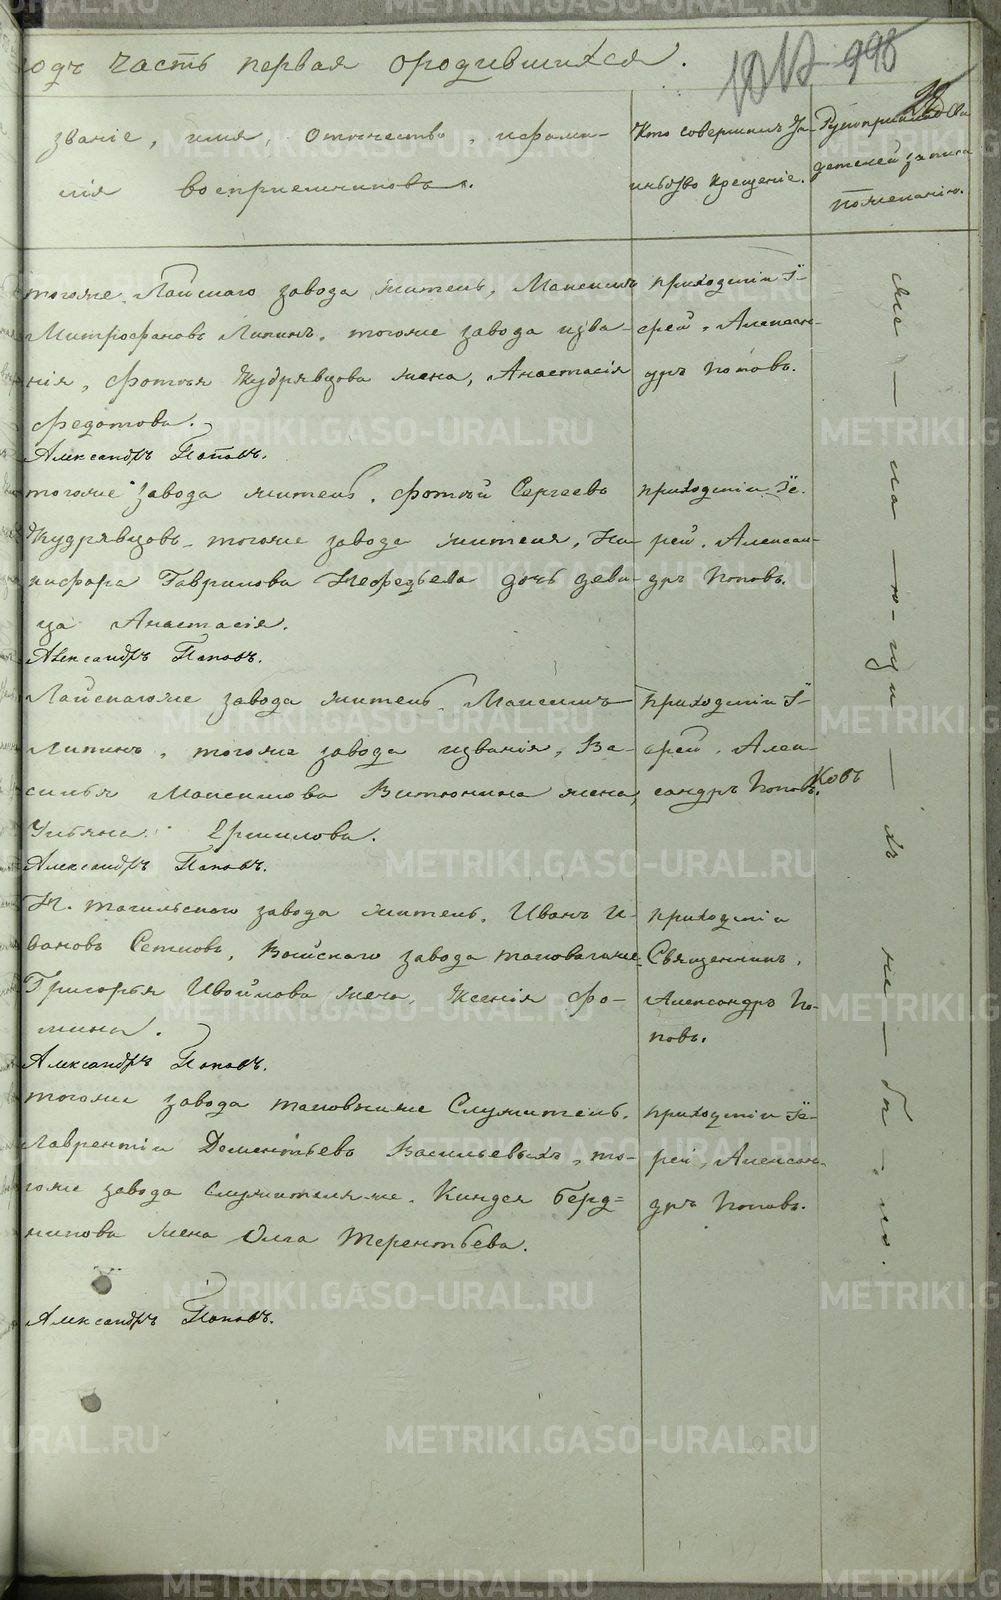 одъ часть первая ородившихся.
званіе, имя, отчество, ифами-
лія воспріемниковъ.
Кто совершилъ Та-
инство крещеніе.
детелей записи
пожеланію.
тогоже Лайскаго завода житель, Максимъ
Митрофановъ Липинъ, тогоже завода изва-
нія, Фотѣя Кудрявцова жена, Анастасія
Федотова.
Александръ Поповъ.
приходскіи Ї-
ерей, Алексан-
дръ Поповъ.
тогоже завода житель, Фотѣй Сергеевъ
Кудрявцовъ, тогоже завода жителя, Ни-
кифора Гаврилова Нефедьева дочь деви-
ца Анастасія.
Александръ Поповъ.
приходскіи Їе-
рей, Алексан-
дръ Поповъ.
Лайскагоже завода житель, Максимъ
Липинъ, тогоже завода изванія, Ва-
силья Максимова Витюнина жена,
Ульяна Ермилова.
Александръ Поповъ.
приходскіи Ї-
ерей, Алек-
сандръ Поповъ.
Н. тагильскаго завода житель, Иванъ И-
вановъ Сетковъ, Войскаго завода таковагоже
Григорья Ивойлова жена, Ксенія Фо-
мина.
Александръ Поповъ.
приходскіи
Священникъ,
Александръ По-
повъ.
тогоже завода таковыйже Служитель,
Лаврентіи Доментьевъ Васильевыхъ, то-
гоже завода служителяже, Киндея Берд=
никова жена Олга Терентьева.
Александръ Поповъ.
приходскіи Їе-
рей, Алексан-
дръ Поповъ.
же-ла-ю-щи-хъ не-бы-ло.
METRIKI.GASO-URAL.RU